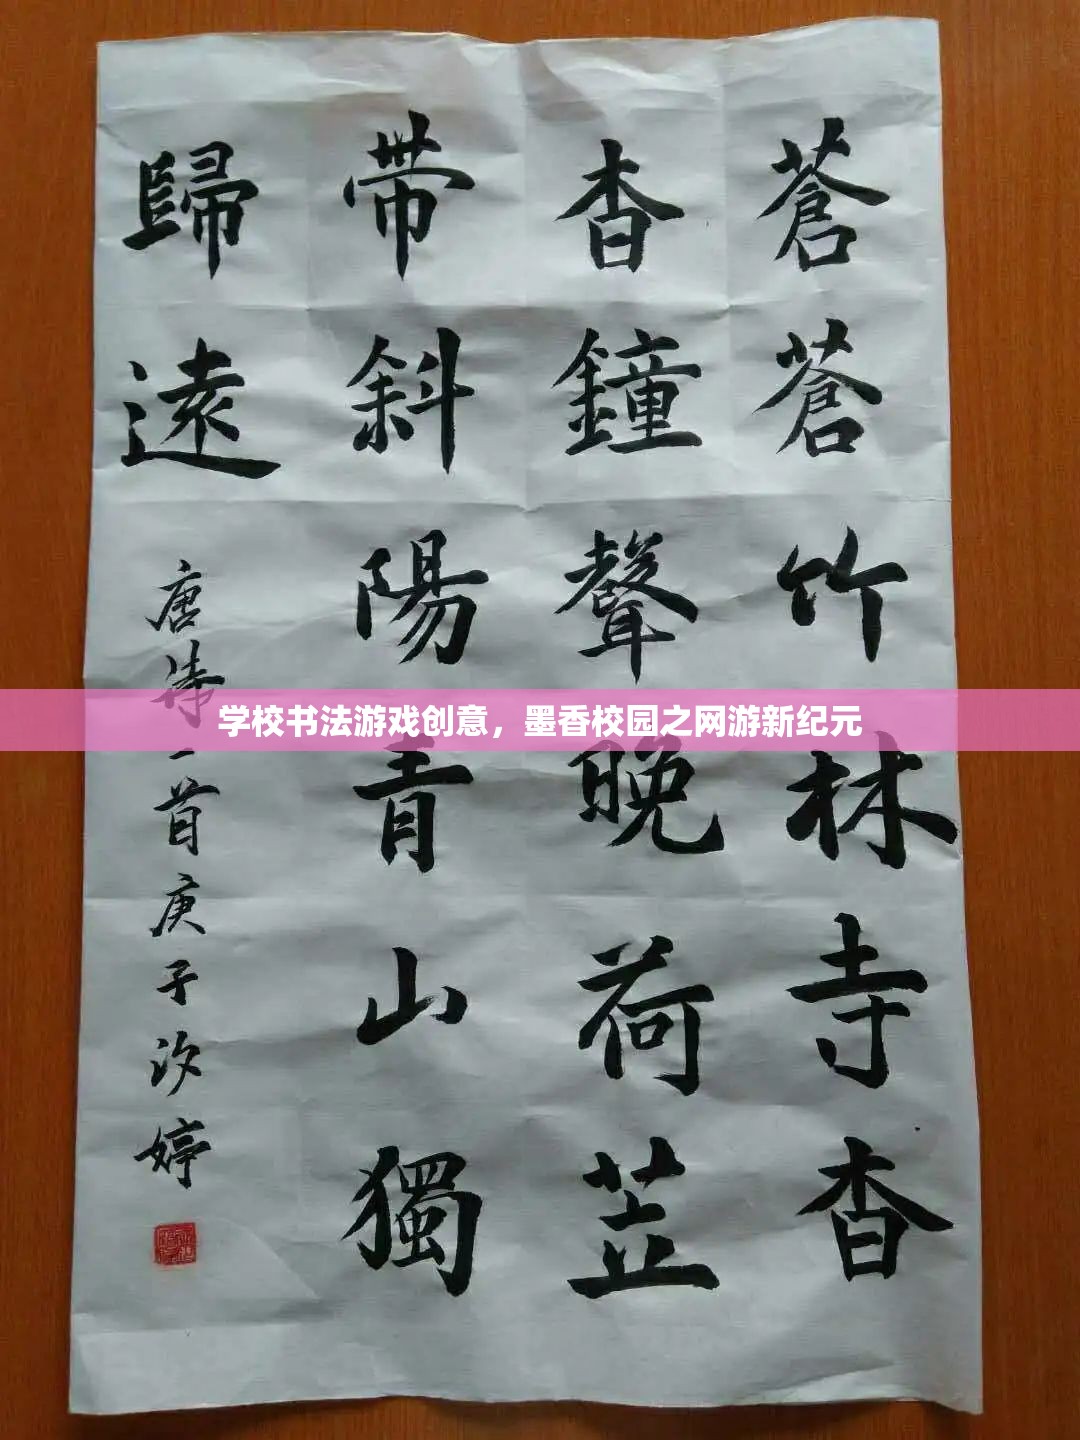 蒼蒼竹林寺杳
杳鐘聲晚荷苙
帶斜陽青山獨
歸遠
唐诗一首庚子汐婷
学校书法游戏创意，墨香校园之网游新纪元